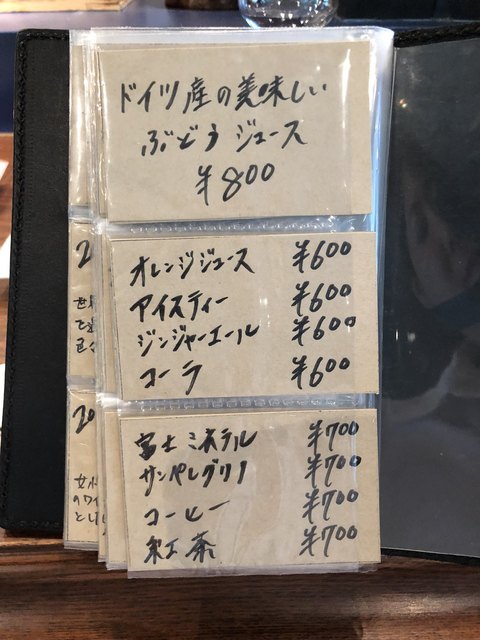 ドイツ産の美味しい
ぶどうジュース
¥800
オレンジジュース ¥600
アイスティー ¥600
ジンジャーエール ¥600
コーラ ¥600
富士ミネラル ¥700
サンペレグリノ ¥700
コーヒー ¥700
紅茶 ¥700